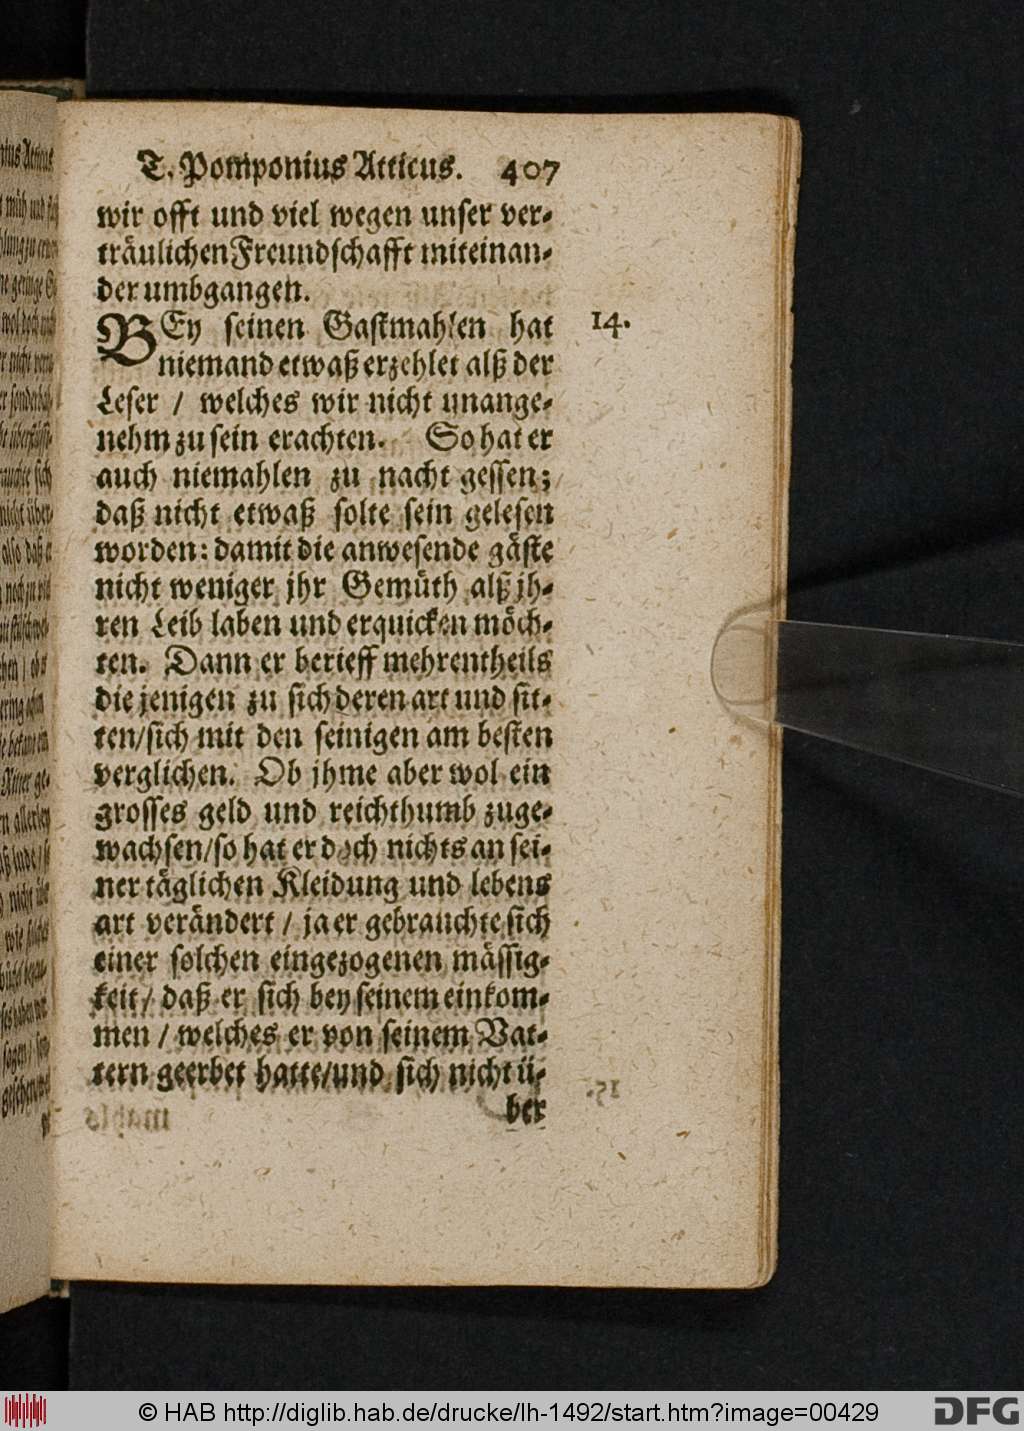 T. Pomponius Atticus. 407
wir offt und viel wegen unser ver-
träulichen Freundschafft miteinan-
der umbgangen.
BEy seinen Gastmahlen hat 14.
niemand etwaß erzehlet alß der
Leser / welches wir nicht unange-
nehm zu sein erachten. So hat er
auch niemahlen zu nacht gessen;
daß nicht etwaß solte sein gelesen
worden: damit die anwesende gäste
nicht weniger jhr Gemüth alß jh-
ren Leib laben und erquicken möch-
ten. Dann er berieff mehrentheils
die jenigen zu sich deren art und sit-
ten/sich mit den seinigen am besten
verglichen. Ob jhme aber wol ein
grosses geld und reichthumb zuge-
wachsen/so hat er doch nichts an sei-
ner täglichen Kleidung und lebens
art verändert / ja er gebrauchte sich
einer solchen eingezogenen mässig-
keit/ daß er sich bey seinem einkom-
men / welches er von seinem Vat-
tern geerbet hatte/und sich nicht ü-
ber
© HAB http://diglib.hab.de/drucke/lh-1492/start.htm?image=00429
DFG